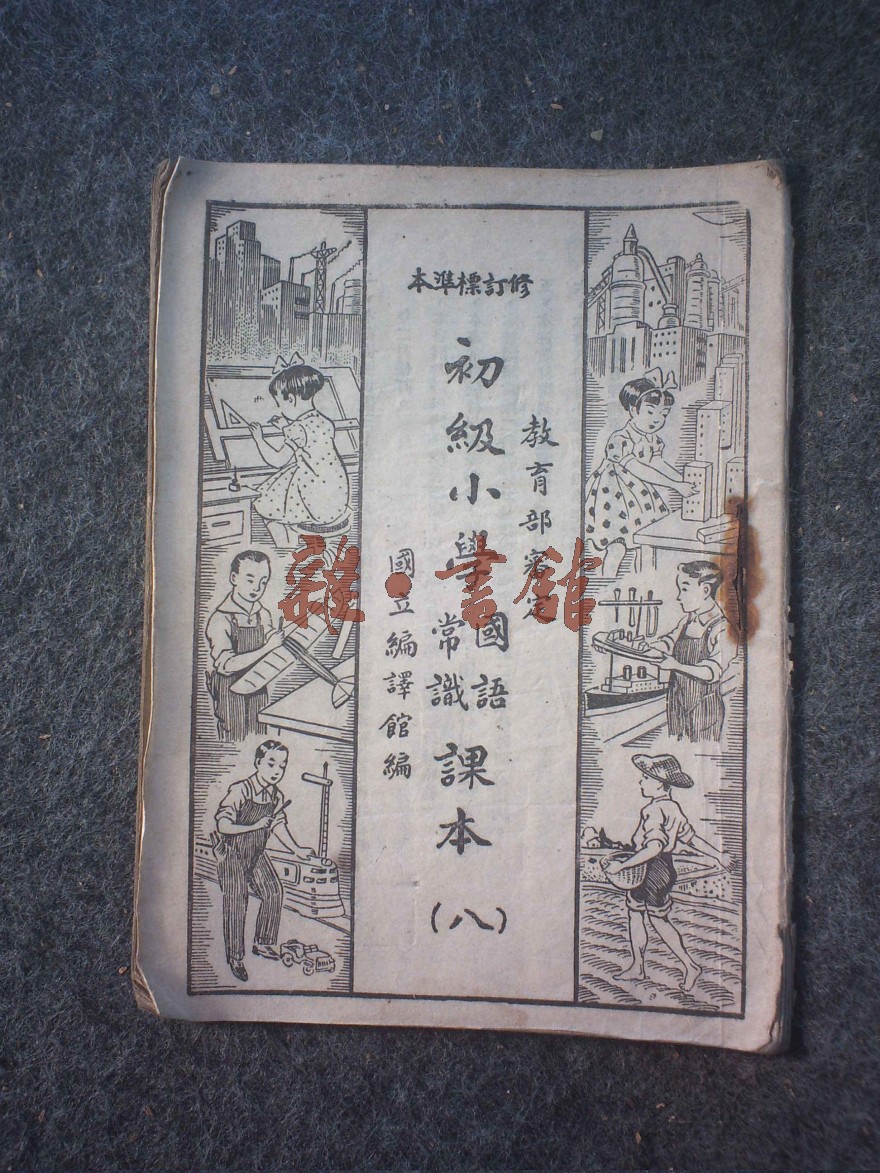 修訂標準本
教育部審定
初級小學國語常識課本(八)
國立編譯館編
雜·書館